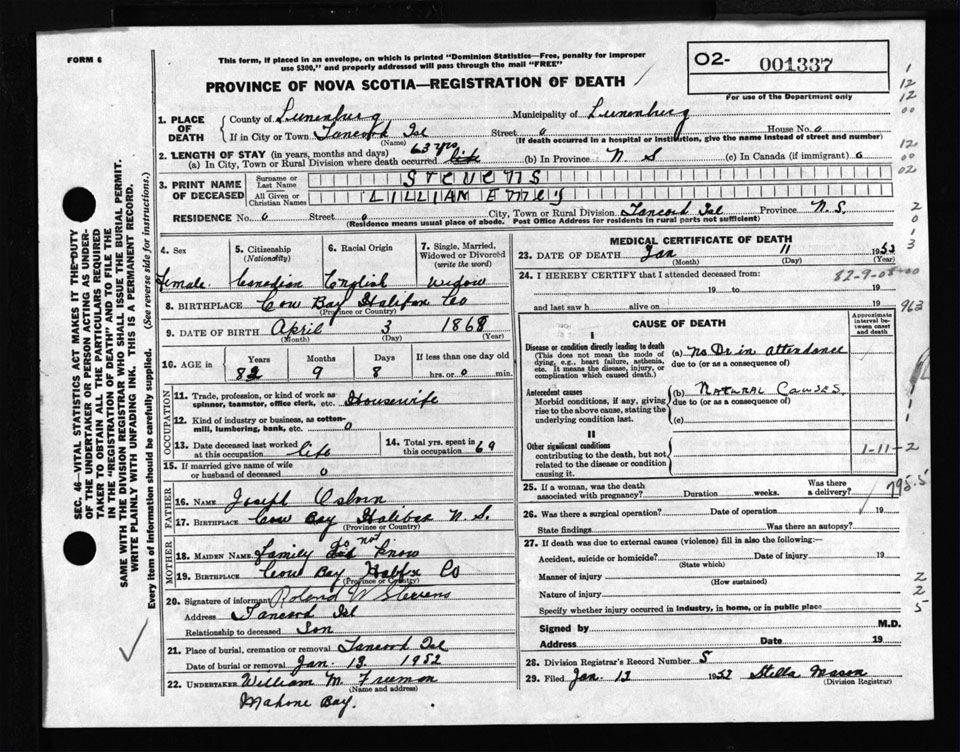 FORM 6
This form, if placed in an envelope, on which is printed "Dominion Statistics—Free, penalty for improper
use $300," and properly addressed will pass through the mail "FREE"
O2- 001337
For use of the Department only
PROVINCE OF NOVA SCOTIA—REGISTRATION OF DEATH
1. PLACE OF DEATH
County of Lunenburg Municipality of Lunenburg
If in City or Town Tancook Isl Street o House No. o
(Name) (If death occurred in a hospital or institution, give the name instead of street and number)
2. LENGTH OF STAY (in years, months and days) 63 yrs
(a) In City, Town or Rural Division where death occurred life (b) In Province N S (c) In Canada (if immigrant) o
3. PRINT NAME OF DECEASED
Surname or Last Name STEVENS
All Given or Christian Names LILLIAN EMMEY
RESIDENCE No. o Street o City, Town or Rural Division Tancook Isl Province N.S.
(Residence means usual place of abode. Post Office Address for residents in rural parts not sufficient)
4. Sex Female
5. Citizenship (Nationality) Canadian
6. Racial Origin English
7. Single, Married, Widowed or Divorced (write the word) Widow
8. BIRTHPLACE Cow Bay Halifax Co
(Province or Country)
9. DATE OF BIRTH April 3 1868
(Month) (Day) (Year)
10. AGE in Years Months Days If less than one day old
9 8 hrs. or 0 min.
OCCUPATION
11. Trade, profession, or kind of work as spinner, teamster, office clerk, etc. Housewife
12. Kind of industry or business, as cotton-mill, lumbering, bank, etc. o
13. Date deceased last worked at this occupation life
14. Total yrs. spent in this occupation 69
15. If married give name of wife or husband of deceased o
FATHER
16. NAME Joseph Osborn
17. BIRTHPLACE Cow Bay Halifax N.S.
(Province or Country)
MOTHER
18. MAIDEN NAME family do not know
19. BIRTHPLACE Cow Bay Halifx Co
(Province or Country)
20. Signature of informant Roland W Stevens
Address Tancook Isl
Relationship to deceased Son
21. Place of burial, cremation or removal Tancook Isl
Date of burial or removal Jan. 13. 1952
22. UNDERTAKER William M. Freeman
(Name and address)
Mahone Bay.
MEDICAL CERTIFICATE OF DEATH
23. DATE OF DEATH Jan 11
(Month) (Day) (Year)
24. I HEREBY CERTIFY that I attended deceased from:
19 to 19
and last saw h alive on 19
963
CAUSE OF DEATH
Approximate interval between onset and death
I
Disease or condition directly leading to death
(This does not mean the mode of dying, e.g., heart failure, asthenia, etc. It means the disease, injury, or complication which caused death.)
(a) No Dr in attendance
due to (or as a consequence of)
Antecedent causes
Morbid conditions, if any, giving rise to the above cause, stating the underlying condition last.
(b) NATURAL CAUSES.
due to (or as a consequence of)
(c)
II
Other significant conditions
contributing to the death, but not related to the disease or condition causing it.
1-11-2
795.5
25. If a woman, was the death associated with pregnancy? Duration weeks. Was there a delivery?
26. Was there a surgical operation? Date of operation 19
State findings Was there an autopsy?
27. If death was due to external causes (violence) fill in also the following:—
Accident, suicide or homicide? Date of injury 19
(State which)
Manner of injury
(How sustained)
Nature of injury
Specify whether injury occurred in industry, in home, or in public place
Signed by M.D.
Address Date 19
28. Division Registrar's Record Number 5
29. Filed Jan. 13 1952 Stella Mason
(Division Registrar)
SEC. 46—VITAL STATISTICS ACT MAKES IT THE DUTY
OF THE UNDERTAKER OR PERSON ACTING AS UNDER-
TAKER TO OBTAIN ALL THE PARTICULARS REQUIRED
IN THE "REGISTRATION OF DEATH" AND TO FILE THE
SAME WITH THE DIVISION REGISTRAR WHO SHALL ISSUE THE BURIAL PERMIT.
WRITE PLAINLY WITH UNFADING INK. THIS IS A PERMANENT RECORD.
Every item of Information should be carefully supplied. (See reverse side for instructions.)